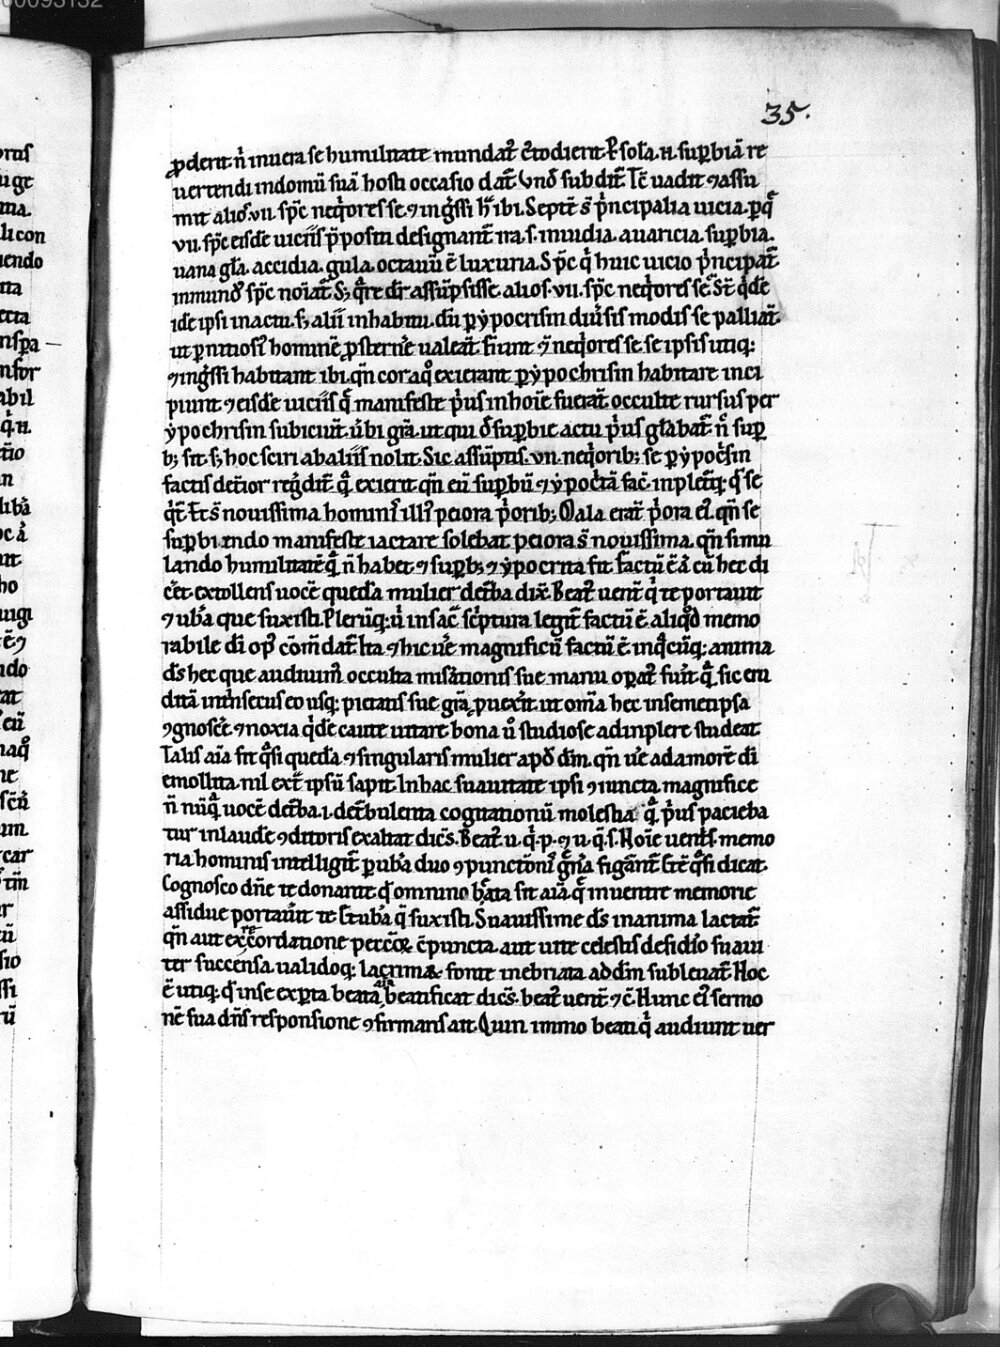 35.
ꝓderit n̄ in uera se humilitate mundat᷑ c̄todierit sola. n. suꝑbiā re
uertendi in domū suā hosti occasio dat᷑ Vnđ subdit᷑ Tc̄ uadit ⁊ assu
mit alios .vii. spc̄ neq̇ores se. ⁊ inḡssi h̄ ibi. Septē s̄ p̄ncipalia uicia. ꝑ q̄
vii. spc̄ eisdē uiciis p̄positi designant᷑ ira. s. inuidia. auaricia. suꝑbia.
uana gl̄a. accidia. gula. octauū ē luxuria. Spc̄ q̇ huic uicio p̄ncipat᷑
inmundꝰ spc̄ noīat᷑ S; q̄re dr̄ assūpsisse. alios .vii. spc̄ neq̇ores se. S̄t q̇dē
idē ipsi in actu. s; alii in habitu. dū ꝑ ypocrisim diūsis modis se palliāt.
ut ꝑnitiosiꝰ hominē ꝓsternē ualeāt. fiunt ⁊ neq̇ores se se ipsis utiq;
⁊ inḡssi habitant ibi. qn̄ cor a q̊ exierant ꝑ ypochrisin habitare inci
piunt ⁊ eisdē uiciis q̄ manifeste ṗus in hoīe fuerāt occulte rursus per
ypochrisin subiciūt. ūbi grā. ut qui đ suꝑbie actu ṗus gl̄abat᷑ n̄ suꝑ
b; sit s; hoc sciri ab aliis nolit. Sic assūptis .vii. neq̇orib; se ꝑ ypoc̄sin
factus det̄ior reḡdit᷑ q̄ exierit qn̄ eū suꝑbū ⁊ ypoc̄tā fac̄. inpletq; qđ se
q̄t᷑. Et s̄ nouissima hominis illiꝰ peiora ṗorib; Mala erāt ṗora eiꝰ qn̄ se
suꝑbiendo manifeste iactare solebat peiora s̄ nouissima. qn̄ simu
lando humilitatē q̄ n̄ habet ⁊ suꝑb; ⁊ ypocrita fit. factū ē ā cū hec di
c̄et. extollens uocē quedā mulier de t̄ba dix̄. Beatꝰ uent᷑ q̇ te portauit
⁊ ubā que suxisti. Plerūq; u̇ in sac᷑ sc̄ptura legit᷑ factū ē aliq̊d memo
rabile dn̄ opꝰ cōm̄dat᷑ Ita ⁊ hic ūe magnificū factū ē in q̇cūq; anima
ds̄ hec que audiuimꝰ occulta mis̄ationis sue manu oꝑatꝰ fuīt q̄ sic eru
ditā int̄nsecus eo usq; pietatis sue grā ꝓuexīt ut om̄a hec in semetipsa
⁊gnosc̄e ⁊ noxia q̇dē caute uitare bona ū studiose adinplere studeat
Talis aīa fit q̄si quedā ⁊ singularis mulier apđ dm̄. qn̄ ūe ad amorē dī
emollita. nil ext᷑ ipsū sapit. In hac suauitate ipsi ⁊iuncta magnifice
n̄ nūq̄ uocē de t̄ba. i. de t̄bulenta cogitationū molestia q̄ ṗus pacieba
tur in laudē ⁊ditoris exaltat dics̄. Beatꝰ u. q̇. p. ⁊ u. q̄. s. Noīe uentis memo
ria hominis intelligit᷑ ꝑ ubā duo ⁊punctōnis ḡn̄a figant᷑ Et ē q̄si dicat.
Cognosco dn̄e te donante qđ omnino bēata sit aīa. q̄ in uentre memorie
assidue portaūit te Et ubā q̄ suxisti. Suauissime ds̄ in anima lactat᷑
qn̄ aut ex recordatione pecc̄oꝝ c̄puncta. aut uite celestis desiđio suaui
ter succensa. ualidoq; lacrimaꝝ fonte inebriata ad dm̄ subleuat᷑ Hoc
ē utiq; qđ in se exꝑta beatā aīa beatificat dics̄. beatꝰ uent᷑ ⁊c̄. Hunc eiꝰ sermo
nē sua dn̄s responsione ⁊firmans ait. Quin immo beati q̇ audiunt uer